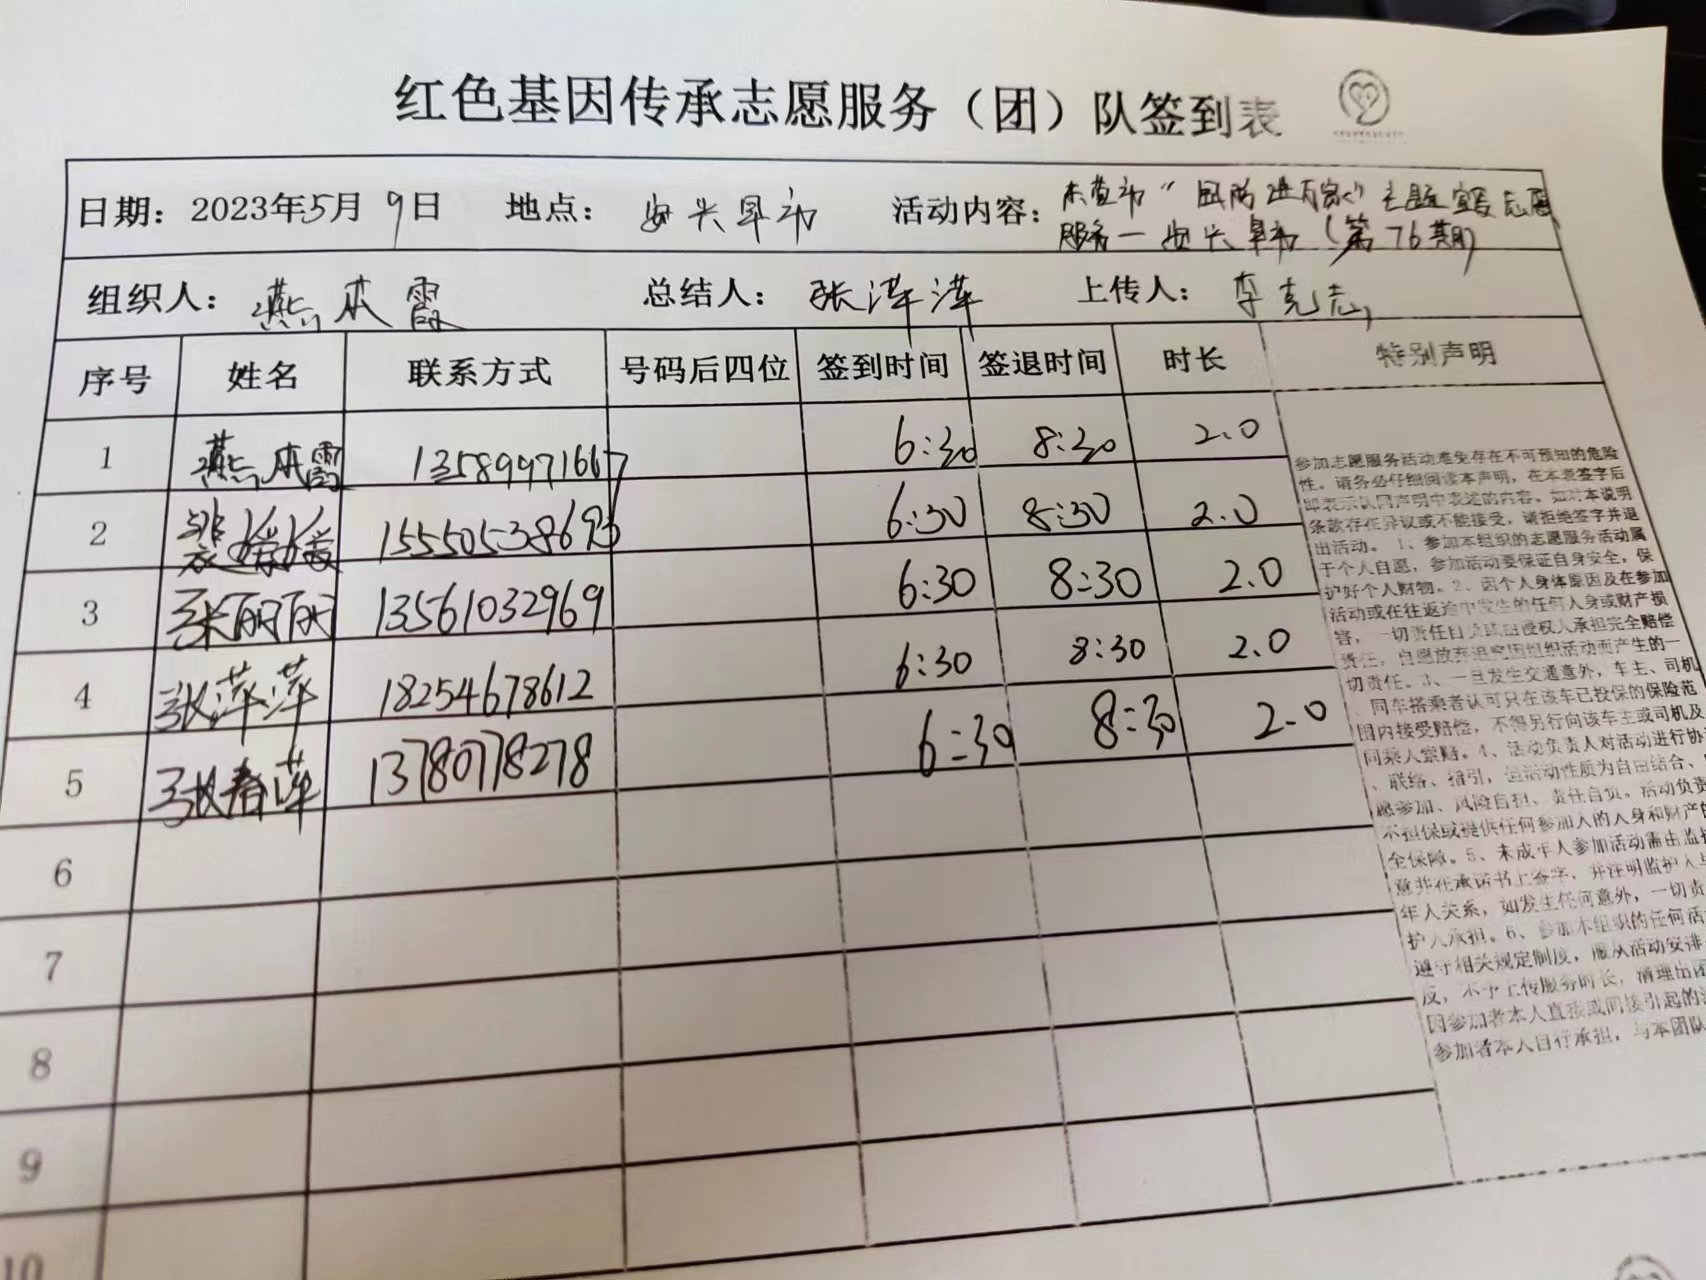 红色基因传承志愿服务（团）队签到表
日期：2023年5月9日 地点：安兴早市 活动内容：东营市“国防进万家”主题宣传志愿
服务—安兴早市（第76期）
组织人：燕本霞 总结人：张萍萍 上传人：李克志
序号 姓名 联系方式 号码后四位 签到时间 签退时间 时长 特别声明
1 燕本霞 13589971667 6:30 8:30 2.0
2 裴媛媛 15550538693 6:30 8:30 2.0
3 张丽丽 13561032969 6:30 8:30 2.0
4 张萍萍 18254678612 6:30 8:30 2.0
5 张春萍 13780778278 6:30 8:30 2.0
6
7
8
9
10
参加志愿服务活动难免存在不可预知的危险
性。请务必仔细阅读本声明，在本表签字后
即表示认同声明中表述的内容。如对本说明
条款存在异议或不能接受，请拒绝签字并退
出活动。1、参加本组织的志愿服务活动属
于个人自愿，参加活动要保证自身安全，保
护好个人财物。2、因个人身体原因及在参加
活动或在往返途中发生的任何人身或财产损
害，一切责任由 侵权人承担完全赔偿
责任，自愿放弃追究因组织活动而产生的一
切责任。3、一旦发生交通意外，车主、司机
、同车搭乘者认可只在该车已投保的保险范
围内接受赔偿，不得另行向该车主或司机及
同乘人索赔。4、活动负责人对活动进行协
、联络、指引，但活动性质为自由结合、
愿参加、风险自担、责任自负。活动负责
不担保或提供任何参加人的人身和财产的
全保障。5、未成年人参加活动需由监
意并在承诺书上签字，并注明监护人与
年人关系，如发生任何意外，一切责
护人承担。6、参加本组织的任何活
遵守相关规定制度，服从活动安排
反，不予上传服务时长，清理出团
因参加者本人直接或间接引起的
参加者本人自行承担，与本团队